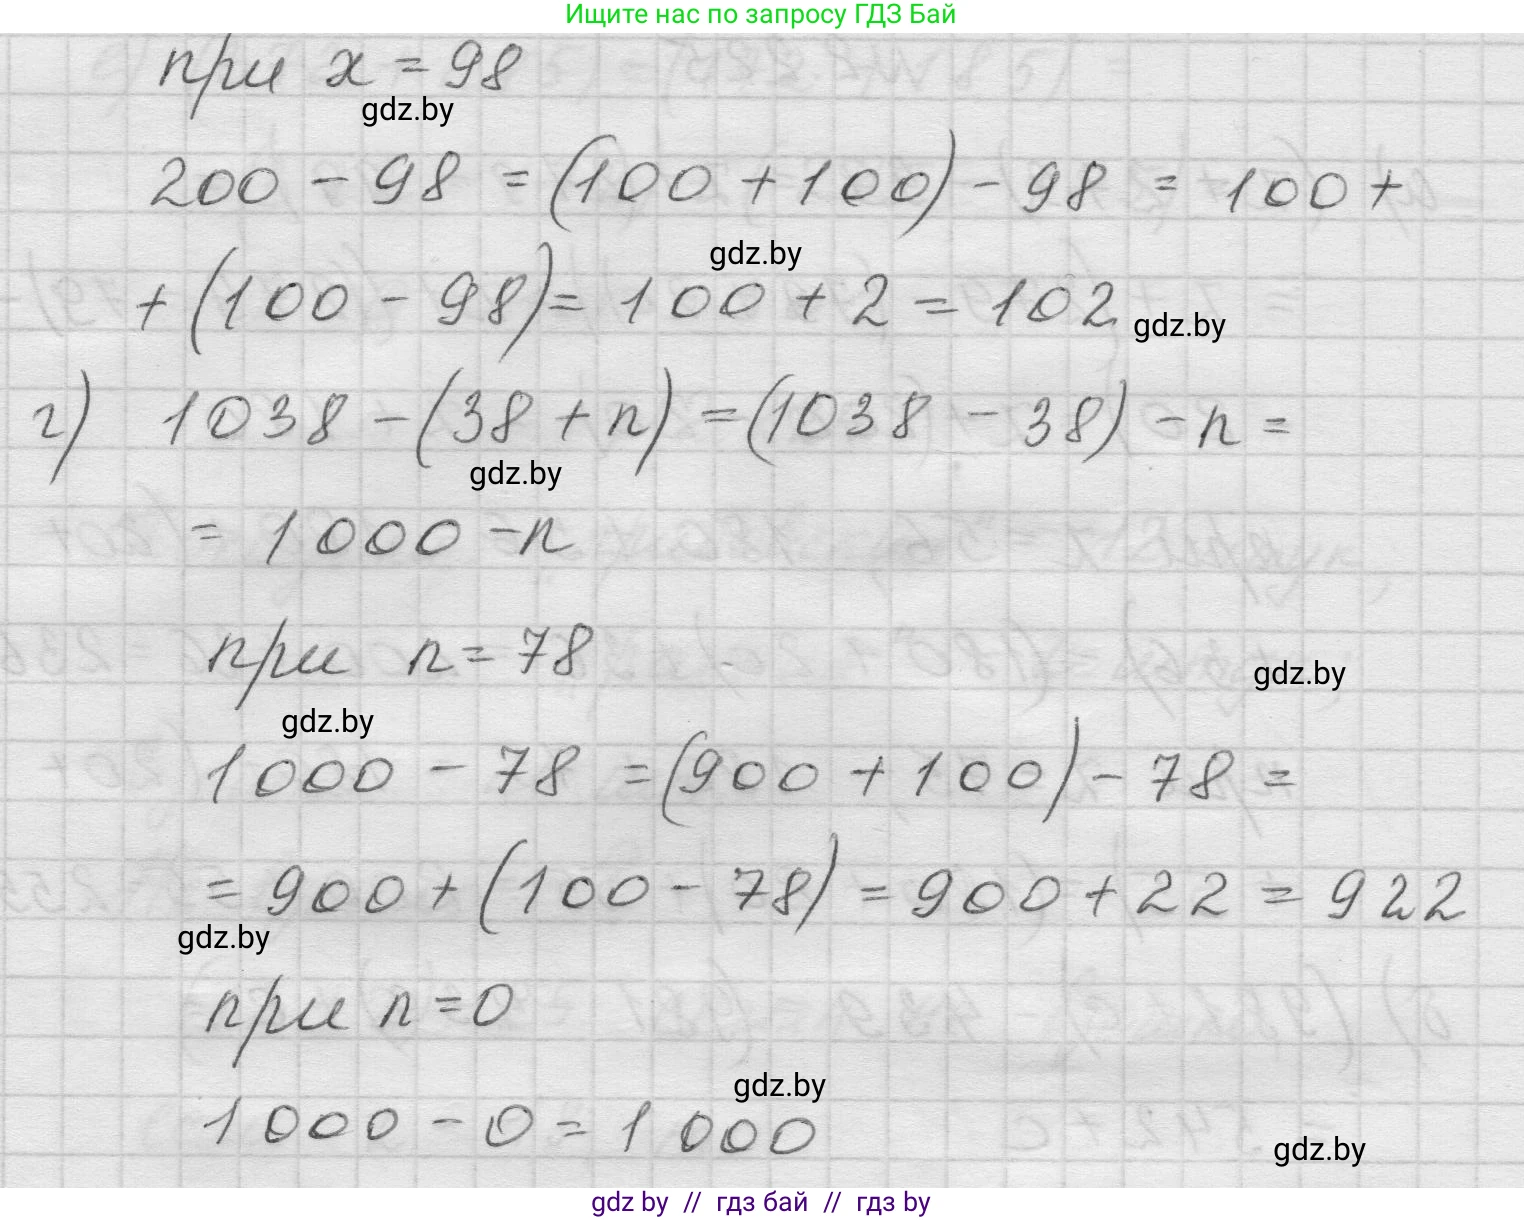 Ищите нас по запросу ГДЗ Бай
при x = 98
gdz.by
200 - 98 = (100 + 100) - 98 = 100 +
gdz.by
+ (100 - 98) = 100 + 2 = 102
gdz.by
г) 1038 - (38 + n) = (1038 - 38) - n =
gdz.by
= 1000 - n
при n = 78
gdz.by
gdz.by
1000 - 78 = (900 + 100) - 78 =
= 900 + (100 - 78) = 900 + 22 = 922
gdz.by
при n = 0
gdz.by
1000 - 0 = 1000
gdz.by
gdz by // гдз бай // гдз by